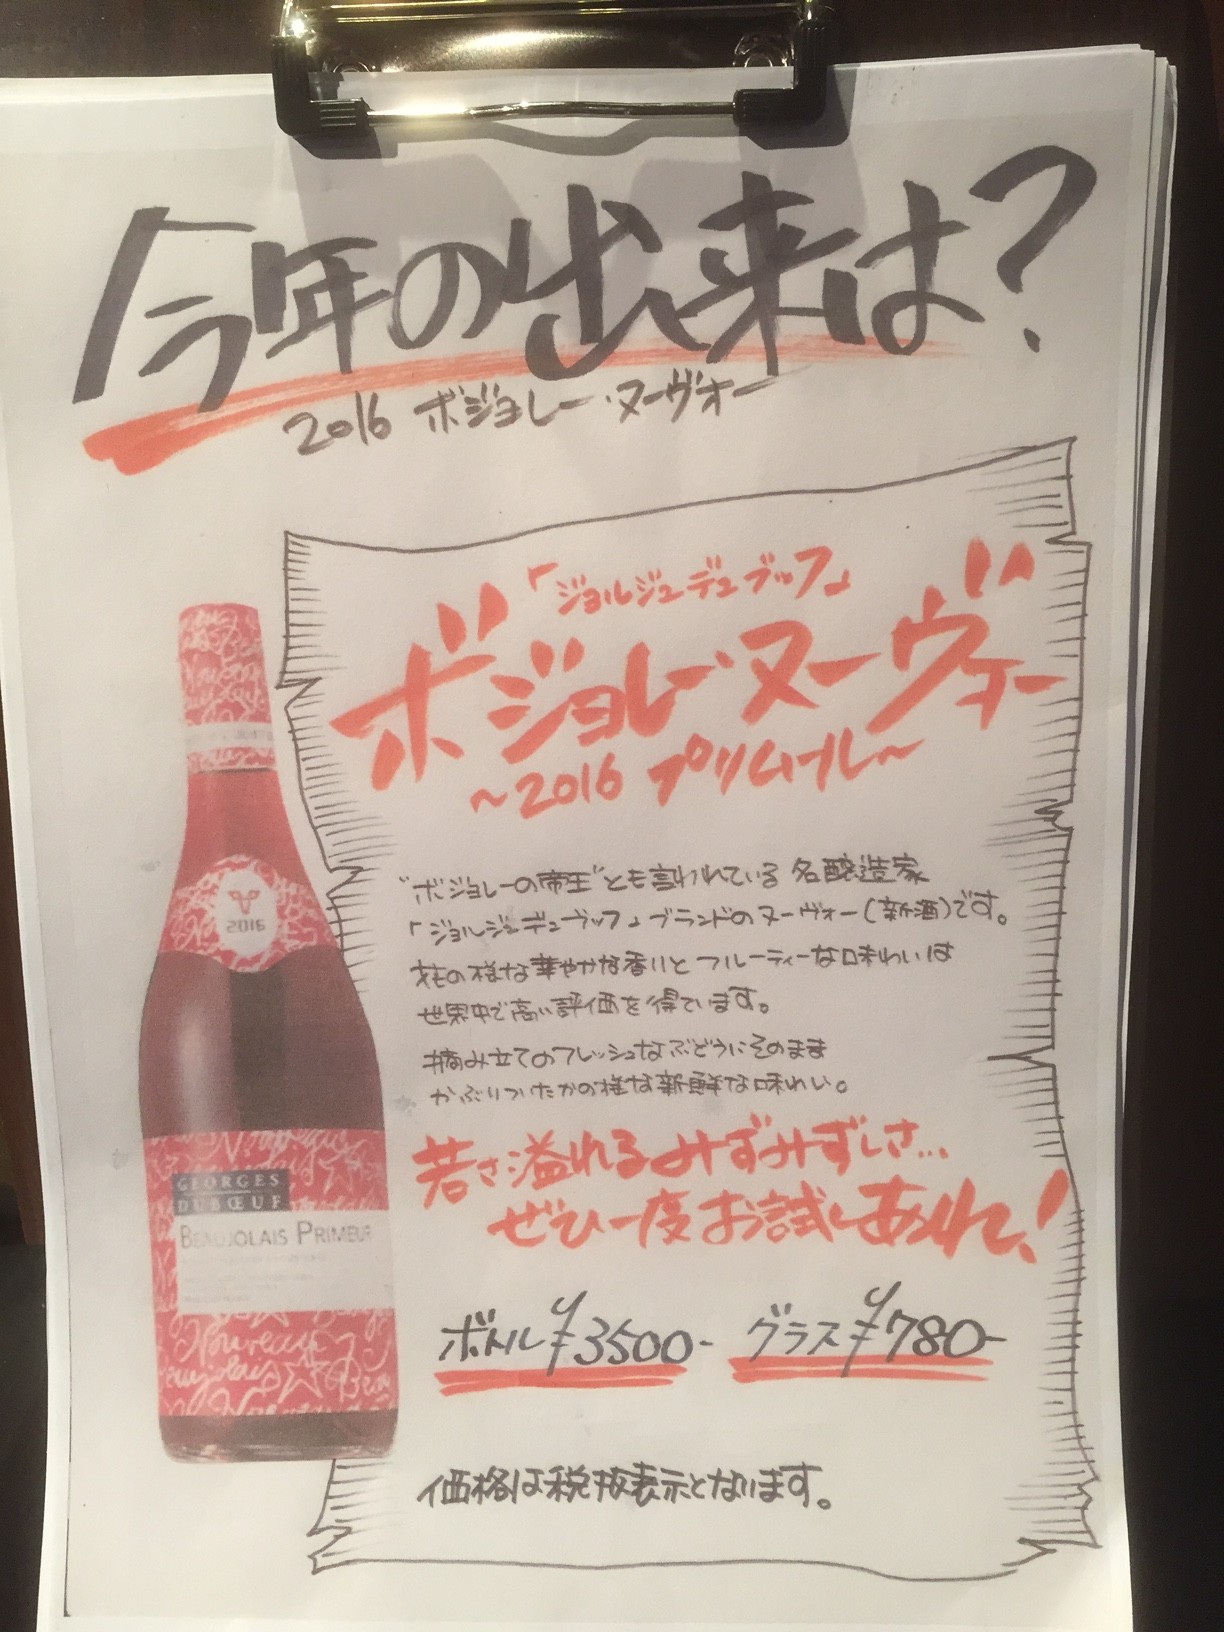 今年の出来は?
2016 ボジョレー・ヌーヴォー
「ジョルジュデュブッフ」
ボジョレー・ヌーヴォー
~2016 プリムール~
"ボジョレーの帝王"とも言われている名醸造家
「ジョルジュデュブッフ」ブランドのヌーヴォー(新酒)です。
花の様な華やかな香りとフルーティーな味わいは
世界中で高い評価を得ています。
摘み立てのフレッシュなぶどうにそのまま
かぶりついたかの様な新鮮な味わい。
若さ溢れるみずみずしさ...
ぜひ一度お試しあれ!
ボトル¥3500- グラス¥780-
価格は税抜表示となります。
2016
GEORGES
DUBŒUF
BEAUJOLAIS PRIMEUR
Nouveau